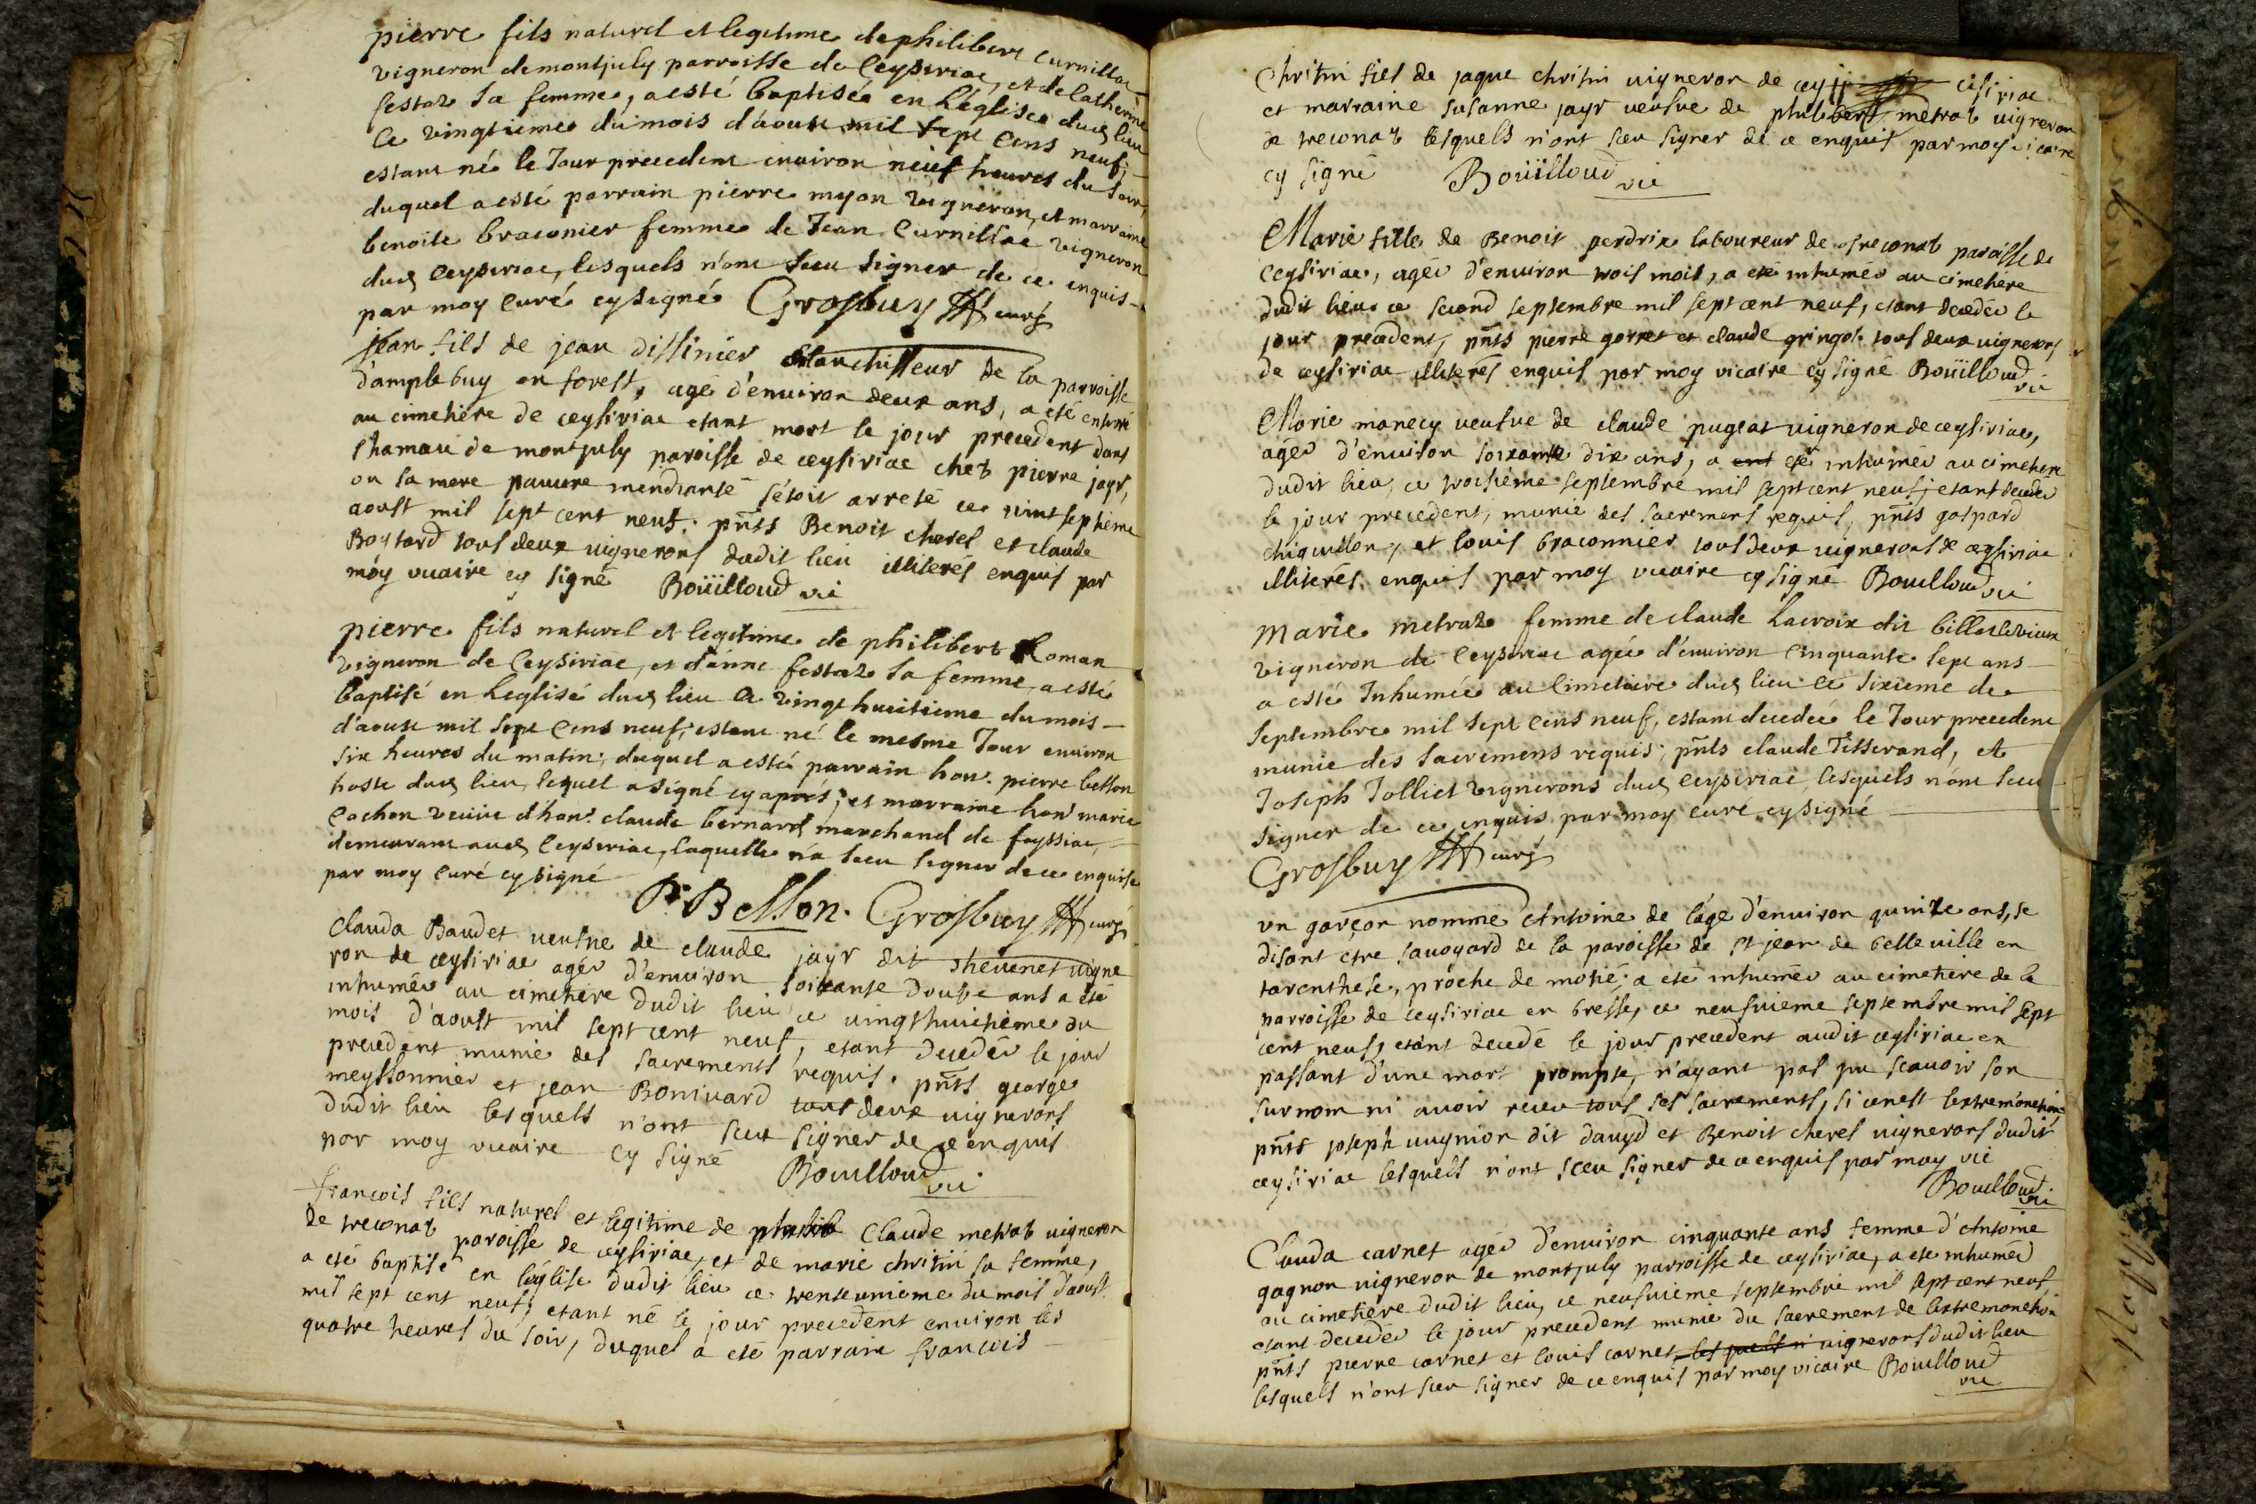 pierre fils naturel et legitime de philibert Curnillac
vigneron de montjuly parroisse de Ceyseriac, et de Catherine
festaz sa femme, a esté baptisée en Léglisée dud lieu
le vingtieme du mois d'aoust mil sept cens neuf,
estant né le Jour precedent environ neuf heures du soir,
duquel a esté parrain pierre myon vigneron, et marraine
benoite braconier femme de Jean Curnillac vigneron
dud Ceyseriac, lesquels n'ont sceu signer de ce enquis
par moy Curé cy signé Grosbuy curé
jean fils de jean dissinier blanchisseur de la parroisse
d'amplebuy en forest, agé d'environ deux ans, a eté enterré
au cimetiére de ceysiriac etant mort le jour precedent dans
l'hamau de montjuly paroisse de ceysiriac chez pierre jayr,
ou sa mere pauvre mendiante s'étoit arreté ce vint septiéme
aoust mil sept cent neuf. pñts Benoit cherel et claude
Boytard tous deux vignerons dudit lieu illiterés enquis par
moy vicaire cy signé Boüilloud vic
pierre fils naturel et legitime de philibert Roman
vigneron de Ceysiriac, et d'anne festaz sa femme, a esté
baptisé en Leglise dud lieu le vingt huitieme du mois
d'aoust mil sept cens neuf, estant né le mesme Jour environ
six heures du matin; duquel a esté parrain hon. pierre bellon
hoste dud lieu, lequel a signé cy apres; et marraine hon marie
Cochon veuve d'hon. claude bernard marchand de
demeurant aud Ceyseriac, laquelle n'a sceu signer de ce enquise
par moy Curé cy signé
P. Bellon. Grosbuy curé
Clauda Baudet veufve de claude jayr dit thevenet vigne
ron de ceysiriac agée d'environ soixante douze ans a été
inhumée au cimetiére dudit lieu ce vingt huitiéme du
mois d'aoust mil sept cent neuf, etant decedée le jour
precedent munie des sacrements requis. pñts george
meyssonnier et jean Bonivard tous deux vignerons
dudit lieu lesquels n'ont sceu signer de ce enquis
par moy vicaire cy signé Bouilloud vic
francois fils naturel et legitime de Claude metrat vigneron
de treconat paroisse de ceysiriac, et de marie christin sa femme,
a eté baptisé en l'église dudit lieu ce trente unieme du mois d'aoust
mil sept cent neuf, etant né le jour precedent environ les
quatre heures du soir, duquel a eté parrain francois
Christin fils de jaque christin vigneron de cesiriac
et marraine susanne jayr veufve de philibert metrat vigneron
a treconat lesquels n'ont sceu signer de ce enquis par moy vicaire
cy signé Boüilloud vic
Marie fille de Benoit perdrix laboureur de treconat paroisse de
Ceysiriac, agée d'environ trois mois, a eté inhumée au cimetiere
dudit lieu ce second septembre mil sept cent neuf, etant decedée le
jour precedent, pñts pierre gorret et claude gringot tous deux vignerons
de ceysiriac illiterés enquis par moy vicaire cy signé Boüilloud
vic
Marie manecy veufve de claude pugeat vigneron de ceysiriac,
agée d'environ soixante dix ans, a eté inhumée au cimetiere
dudit lieu, ce troisiéme septembre mil sept cent neuf, etant decedée
le jour precedent, munie des sacremens requis, pñts gaspard
chiquillon, et louis braconnier tous deux vignerons de ceysiriac
illiterés enquis par moy vicaire cy signé Bouilloud
vic
Marie metraz femme de claude Lacroix dit billet levieux
vigneron de Ceyseriac agée d'environ Cinquante sept ans
a esté Inhumée au Cimetiere dud lieu le sixieme de
septembre mil sept cens neuf, estant decedée le Jour precedent
munie des sacremens requis; pñts claude Tisserand, et
Joseph Jolliet vignerons dud Ceyseriac, lesquels n'ont sceu
signer de ce enquis par moy curé cy signé
Grosbuy curé
vn garçon nommé Antoine de l'âge d'environ quinze ans, se
disant etre savoyard de la paroisse de St jean de belleville en
tarenthese, proche de motié; a eté inhumée au cimetiére de la
parroisse de ceysiriac en bresse, ce neufvieme septembre mil sept
cent neuf, etant decedé le jour precedent audit ceysiriac en
passant d'une mort prompte, n'ayant pas pu scavoir son
surnom ni avoir receu tous ses sacrements, si cenest lextremonction
pñts joseph vugnion dit davyd et Benoit cherel vignerons dudit
ceysiriac lesquels n'ont sceu signer de ce enquis par moy vic
Bouilloud
vic
Clauda carnet agée d'environ cinquante ans femme d'Antoine
gagnon vigneron de montjuly parroisse de ceysiriac, a eté inhumée
au cimetiére dudit lieu, ce neufvieme septembre mil sept cent neuf,
etant decedée le jour precedent munie du sacrement de lextremonction
pñts pierre carnet et louis carnet lesquels n' vignerons dudit lieu
lesquels n'ont sceu signer de ce enquis par moy vicaire Bouilloud
vic